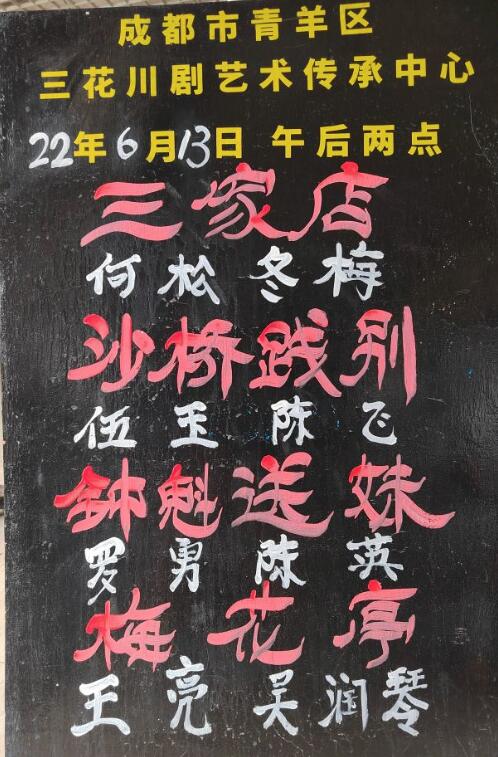 成都市青羊区
三花川剧艺术传承中心
22年6月13日 午后两点
三家店
何松冬梅
沙桥践别
伍王陈飞
钟魁送妹
罗勇陈英
梅花亭
王亮吴润琴